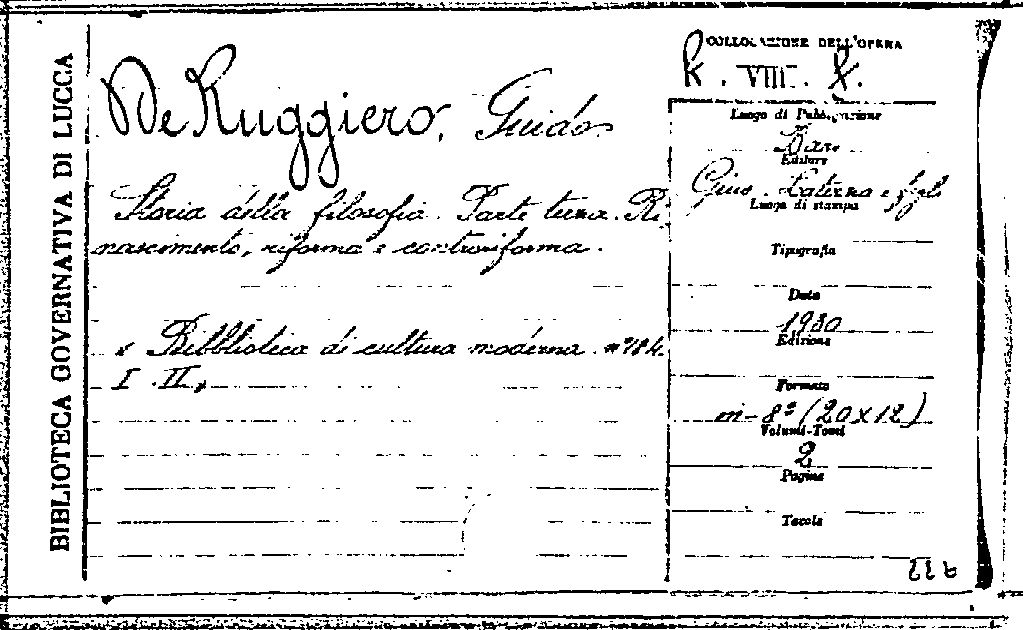 BIBLIOTECA GOVERNATIVA DI LUCCA
De Ruggiero, Guido
Storia della filosofia. Parte terza. Ri
nascimento, riforma e controriforma.
« Bibblioteca di cultura moderna. n°
I. II,
COLLOCAZIONE DELL'OPERA
R. VIII.
Luogo di Pubblicazione
Bari
Editore
Gius. Laterza e figli
Luogo di stampa
Tipografia
Data
1930
Edizione
Formato
in-8° (20x12)
Volumi-Tomi
2
Pagine
Tavole